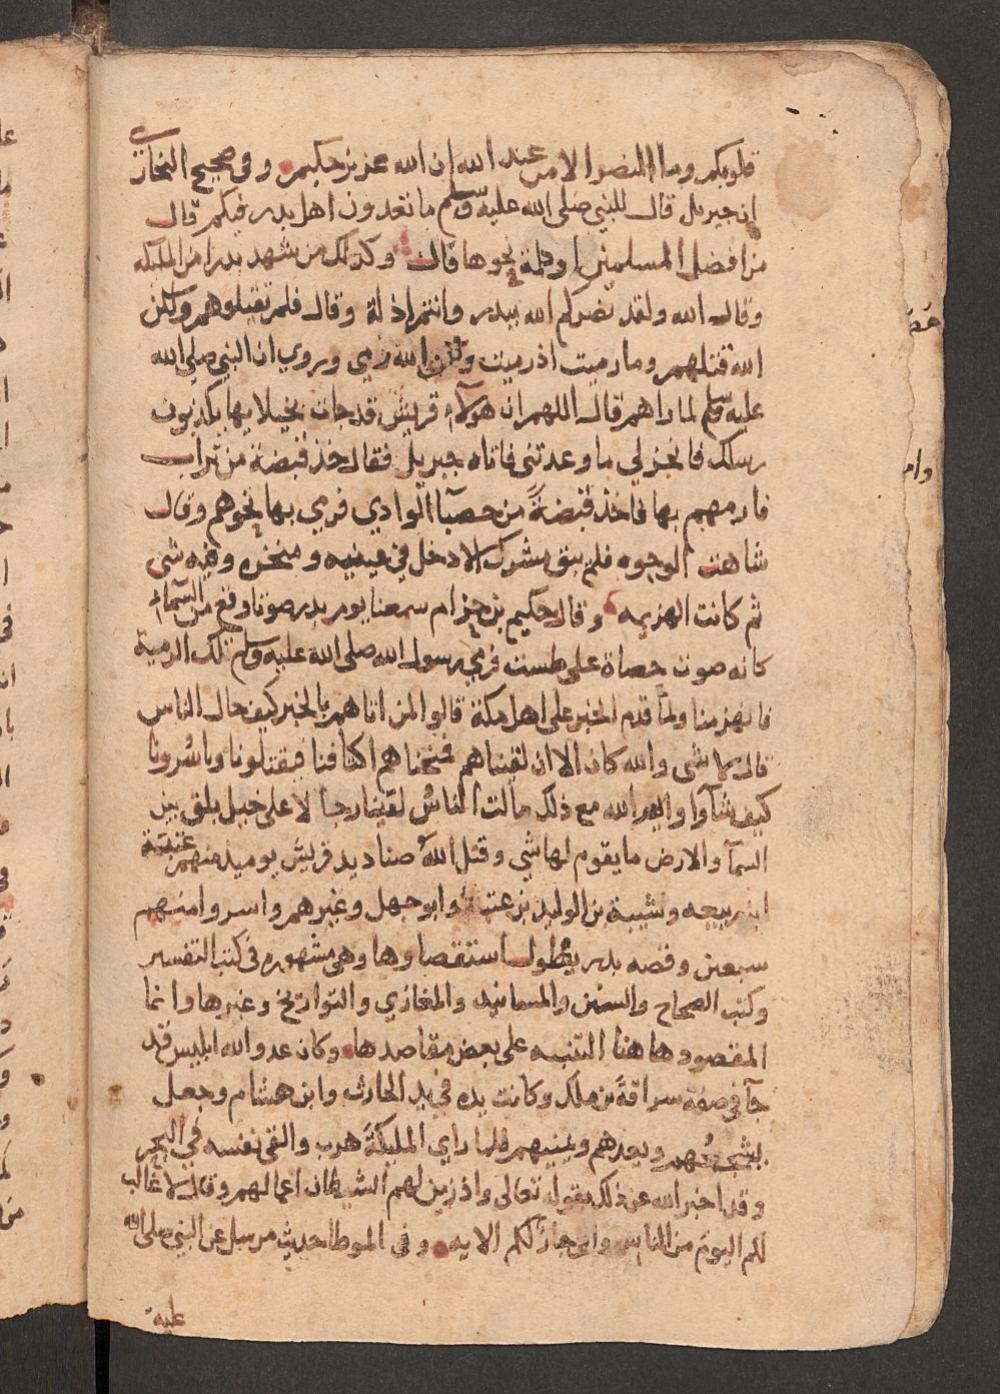 قلوبكم وما النصر الا من عند الله ان الله عزيز حكيم وفي صحيح البخاري
ان جبريل قال للنبي صلى الله عليه وسلم ما تعدون اهل بدر فيكم قال
من افضل المسلمين او كلمة نحوها قال وكذلك من شهد بدرا من المليكه
وقال الله ولقد نصركم الله ببدر وانتم اذلة وقال فلم تقتلوهم ولكن
الله قتلهم وما رميت اذ رميت ولكن الله رمي وروي ان النبي صلى الله
عليه وسلم لما راهم قال اللهم ان هولآء قريش قد جات بخيلايها يكذبون
رسلك فانجز لي ما وعدتني فاتاه جبريل فقال خذ قبضة من تراب
فارمهم بها فاخذ قبضةً من حصبآ الوادي فرمي بها نحوهم وقال
شاهت الوجوه فلم يبق مشرك الا دخل في عينيه ومنخره وفيه شي
ثم كانت الهزيمه وقال حكيم بن حزام سمعنا يوم بدر صوتا وقع من السماء
كانه صوت حصاة على طست فرمي رسول الله صلى الله عليه وسلم تلك الرمية
فانهزمنا ولما قدم الخبر على اهل مكة قالوا لمن اتاهم بالخبر كيف حال الناس
قال لا شي والله كان الا ان لقيناهم فمنحناهم اكتافنا فيقتلونا وياسرونا
كيف شآوا وايم الله مع ذلك ما لمت الناس لقينا رجالا على خيل بلق بين
السمآ والارض ما يقوم لها شي وقتل الله صناديد قريش يوميذ منهم عتبة
ابن ربيعه وشيبة بن الوليد بن عتبة وابو جهل وغيرهم واسروا منهم
سبعين وقصه بدر يطول استقصاوها وهي مشهوره في كتب التفسير
وكتب الصحاح والسنن والمسانيد والمغازي والتواريخ وغيرها وانما
المقصود هاهنا التنبيه على بعض مقاصدها وكان عدو الله ابليس قد
جآ في صفة سراقة بن ملك وكانت يده في يد الحارث وابن هشام وجعل
يشجعهم ويعدهم ويمنيهم فلما راي المليكة هرب والقى نفسه في البحر
وقد اخبر الله عن ذلك بقوله تعالى واذ زين لهم الشيطان اعمالهم وقال لا غالب
لكم اليوم من الناس واني جار لكم الايه وفي الموطا حديث مرسل عن النبي صلى الله
عليه